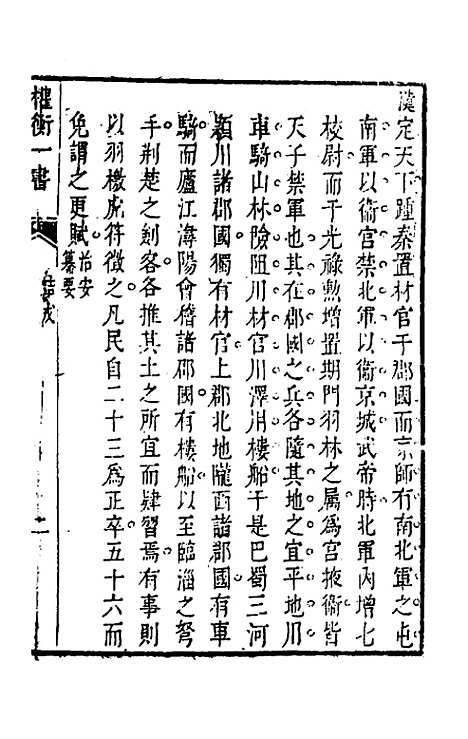 漢定天下踵秦置材官于郡國而京師有南北軍之屯
南軍以衞宮禁北軍以衞京城武帝時北軍內增七
校尉而于光祿勲增置期門羽林之属為宮掖衞皆
天子禁軍也其在郡國之兵各隨其地之宜平地川
車騎山林險阻川材官川澤用樓船于是巴蜀三河
潁川諸郡國獨有材官上郡北地隴西諸郡國有車
騎而廬江潯陽會稽諸郡國有樓船以至臨淄之弩
手荆楚之劍客各推其土之所宜而肄習焉有事則
以羽檄虎符徴之凡民自二十三爲正卒五十六而
免謂之更賦治安
纂要
權衡一書